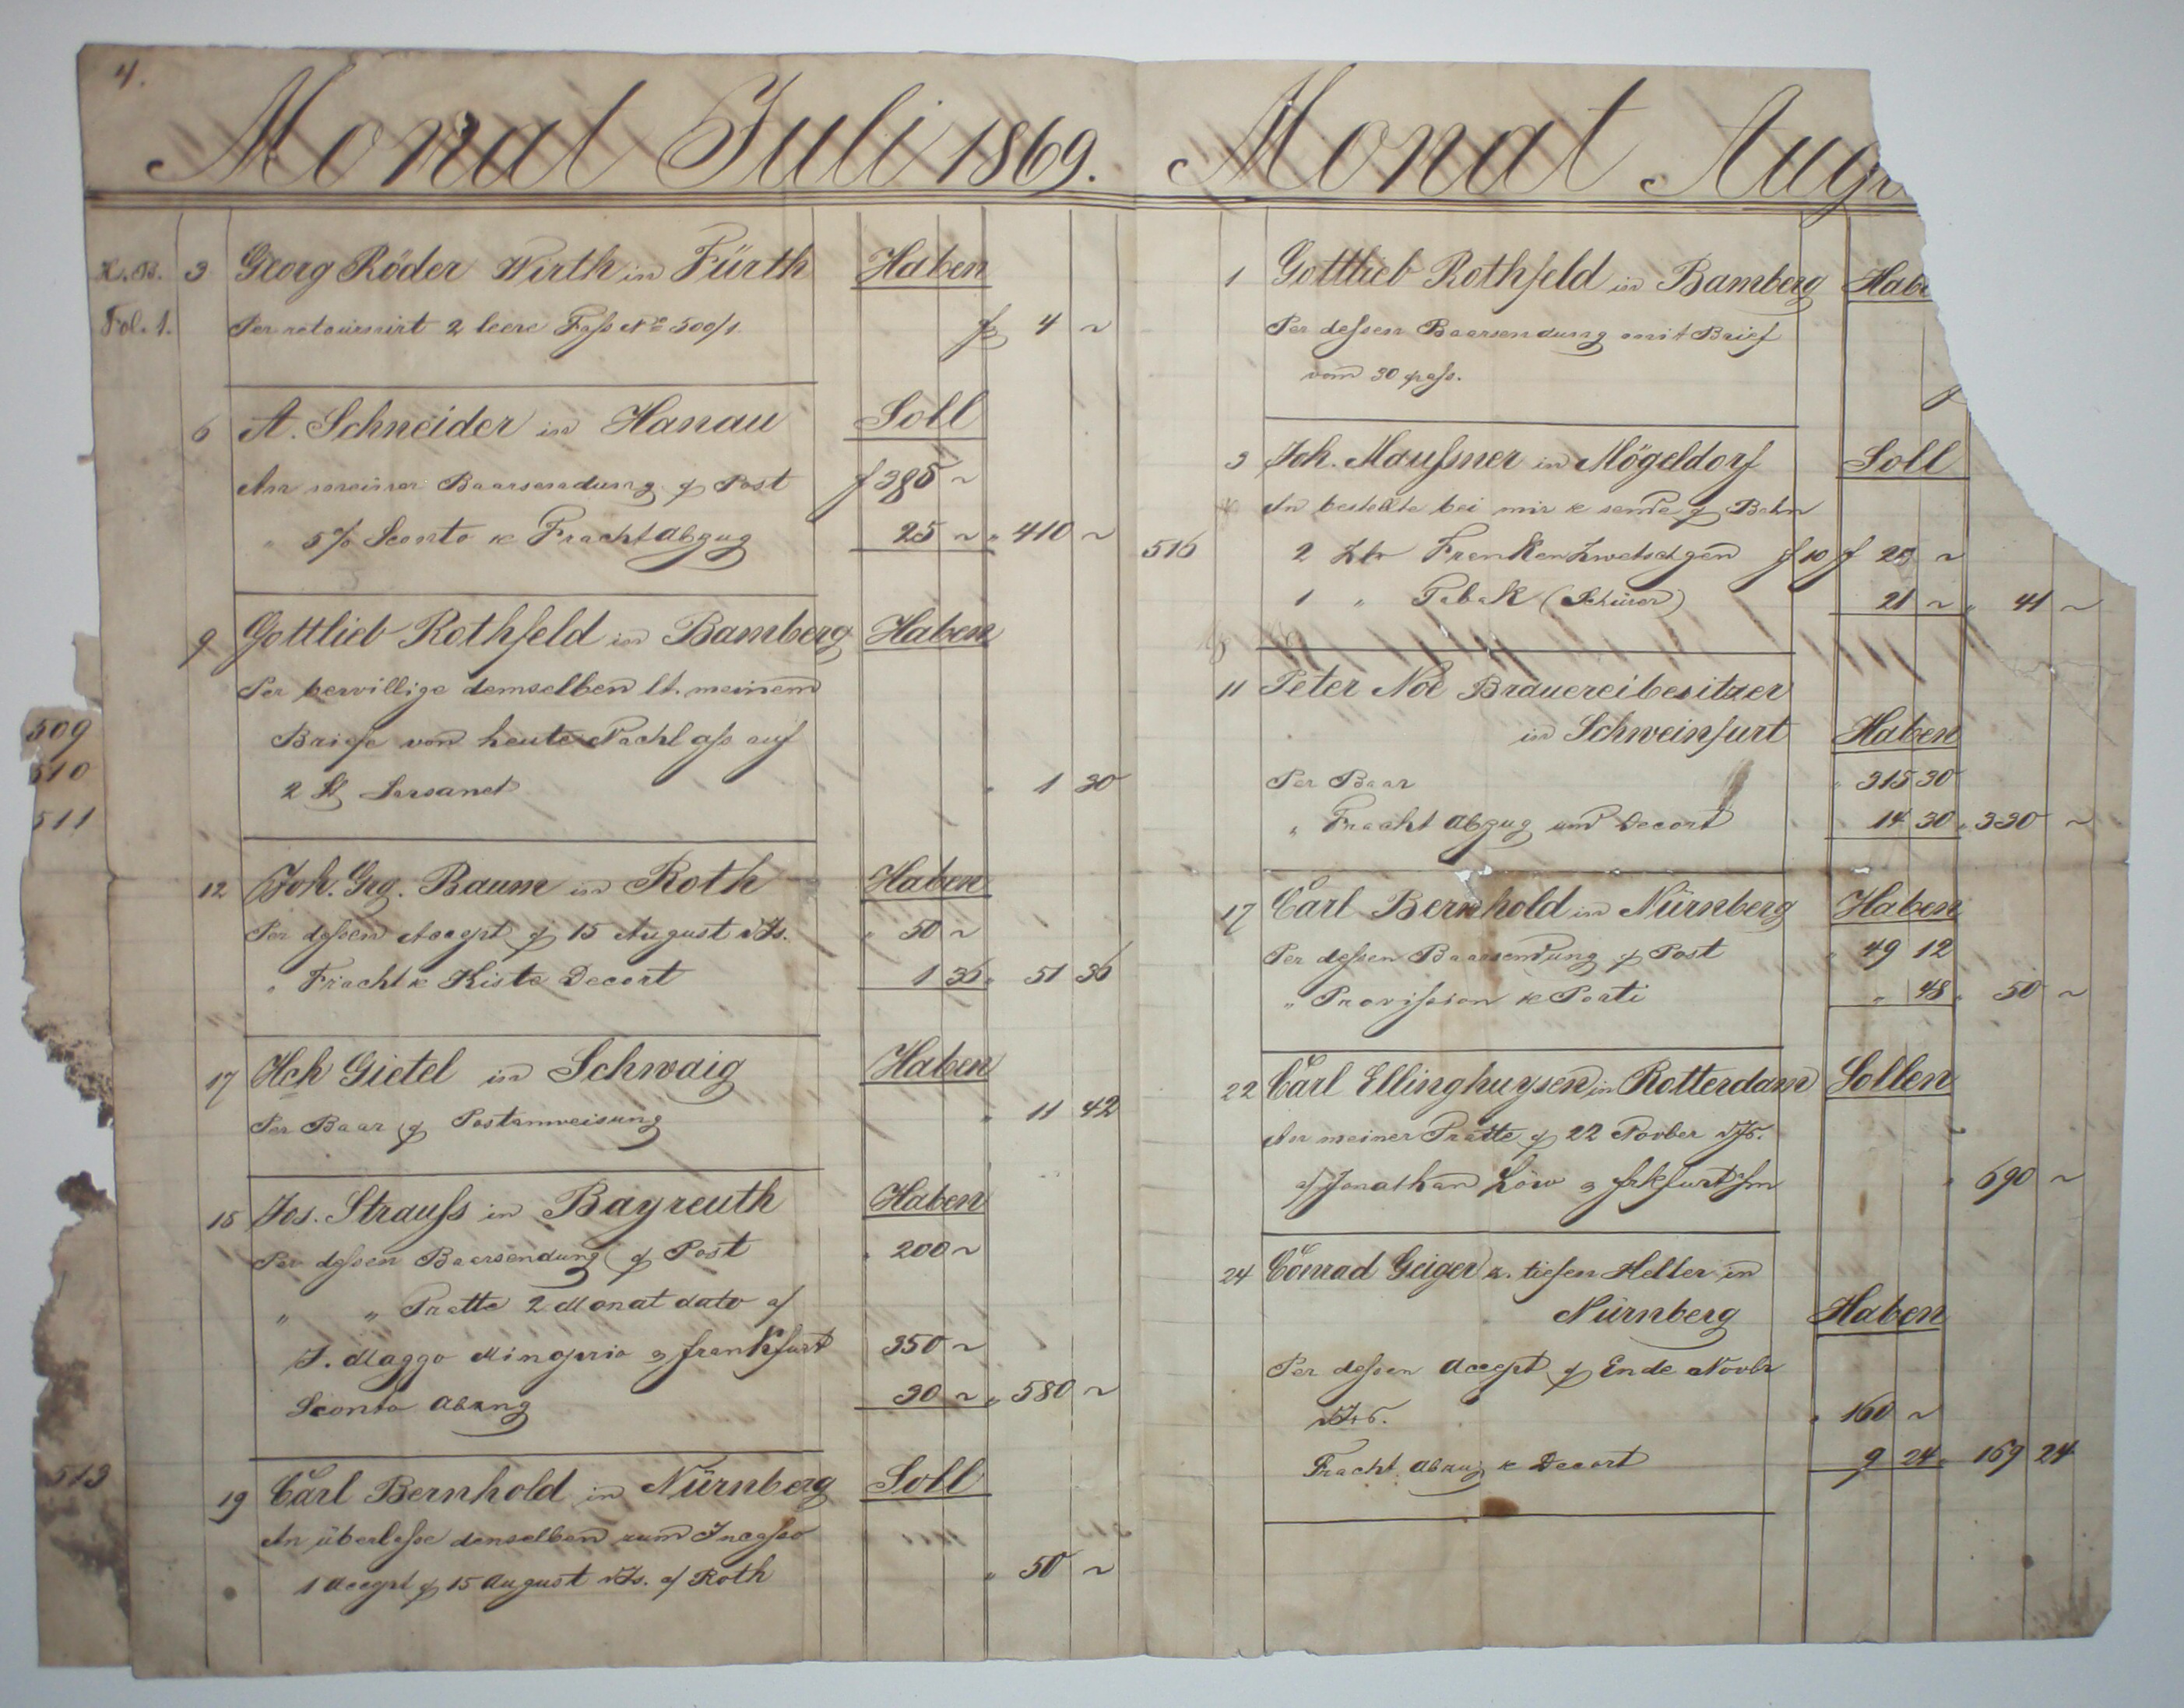 4.
Monat Juli 1869.
K. B. 3 Georg Röder Wirth in Fürth Haben
Fol. 1. Per retournirt 2 leere Fass No 500/1. f 4 ~
6 A. Schneider in Hanau Soll
An meiner Baarsendung p Post f 385 ~
" 5% Sconto & Frachtabzug 25 ~ " 410 ~
9 Gottlieb Rothfeld in Bamberg Haben
Per bewillige demselben lt. meinem
Briefe von heute Nachlass auf
2 St Sarsanet " 1 30
509
510
511
12 Joh. Grg. Baum in Roth Haben
Per dessen Accept p 15 August d. Js. " 50 ~
" Fracht & Kiste Decort 1 36 " 51 36
17 Hch Gietel in Schwaig Haben
Per Baar p Postanweisung " 11 42
18 Jos. Strauss in Bayreuth Haben
Per dessen Baarsendung p Post " 200 ~
" " Tratte 2 Monat dato a/
J. Maggo Minoprio Frankfurt 350 ~
Sconto Abzug 30 ~ " 580 ~
513
19 Carl Bernhold in Nürnberg Soll
An überlasse denselben zum Incasso
1 Accept p 15 August d. Js. a/ Roth " 50 ~
Monat Augu
1 Gottlieb Rothfeld in Bamberg Habe
Per dessen Baarsendung mit Brief
vom 30 pass.
3 Joh. Maussner in Mögeldorf Soll
An bestellte bei mir & sende p Bahn
516 2 Ztr Franken Zwetschgen f 10 f 20 ~
1 " Tabak (Schürer) 21 ~ " 41 ~
11 Peter Noe Brauereibesitzer
in Schweinfurt Haben
Per Baar " 315 30
" Fracht Abzug und Decort 14 30 " 330 ~
17 Carl Bernhold in Nürnberg Haben
Per dessen Baarsendung p Post " 49 12
" Provission & Porti " 48 " 50 ~
22 Carl Ellinghuysen in Rotterdam Sollen
An meiner Tratte p 22 Novber d. Js.
a/ Jonathan Löw Frkfurt a/m " 690 ~
24 Conrad Geiger z. tiefen Keller in
Nürnberg Haben
Per dessen Accept p Ende Novbr
d. Js. " 160 ~
Fracht Abzug & Decort 9 24 " 169 24